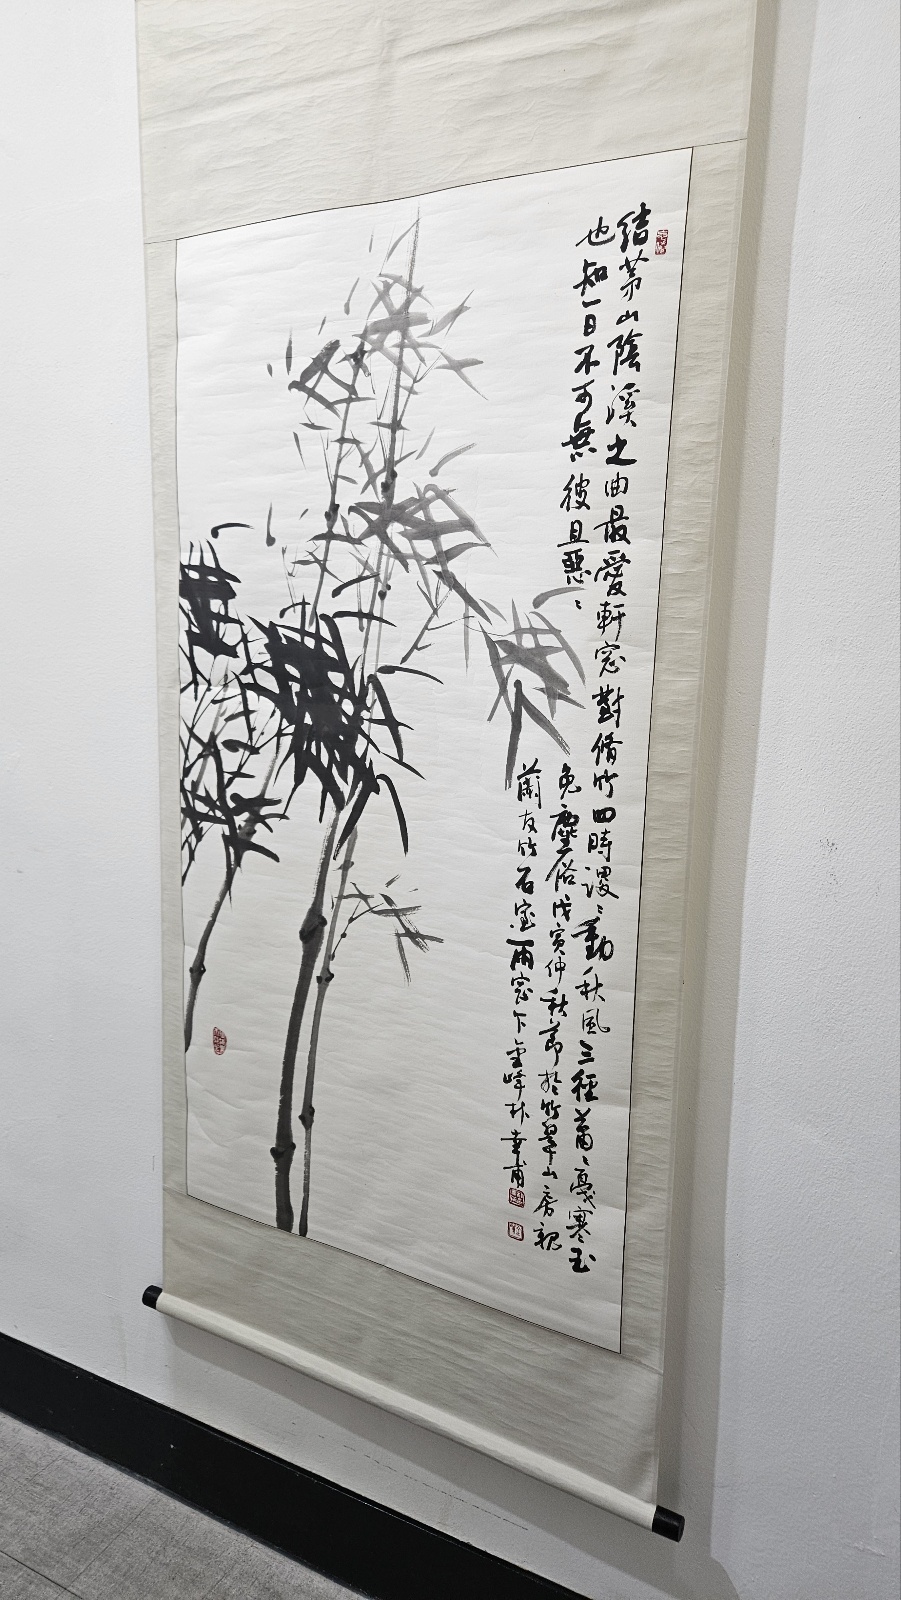 結茅山陰溪之曲最愛軒窓對脩竹四時漫〻動秋風三徑蕭〻戞寒玉
也知一日不可無彼且惡〻
免塵俗戊寅仲秋節於竹翠山房親
蘭友竹石室雨窓下 峰朴幸甫